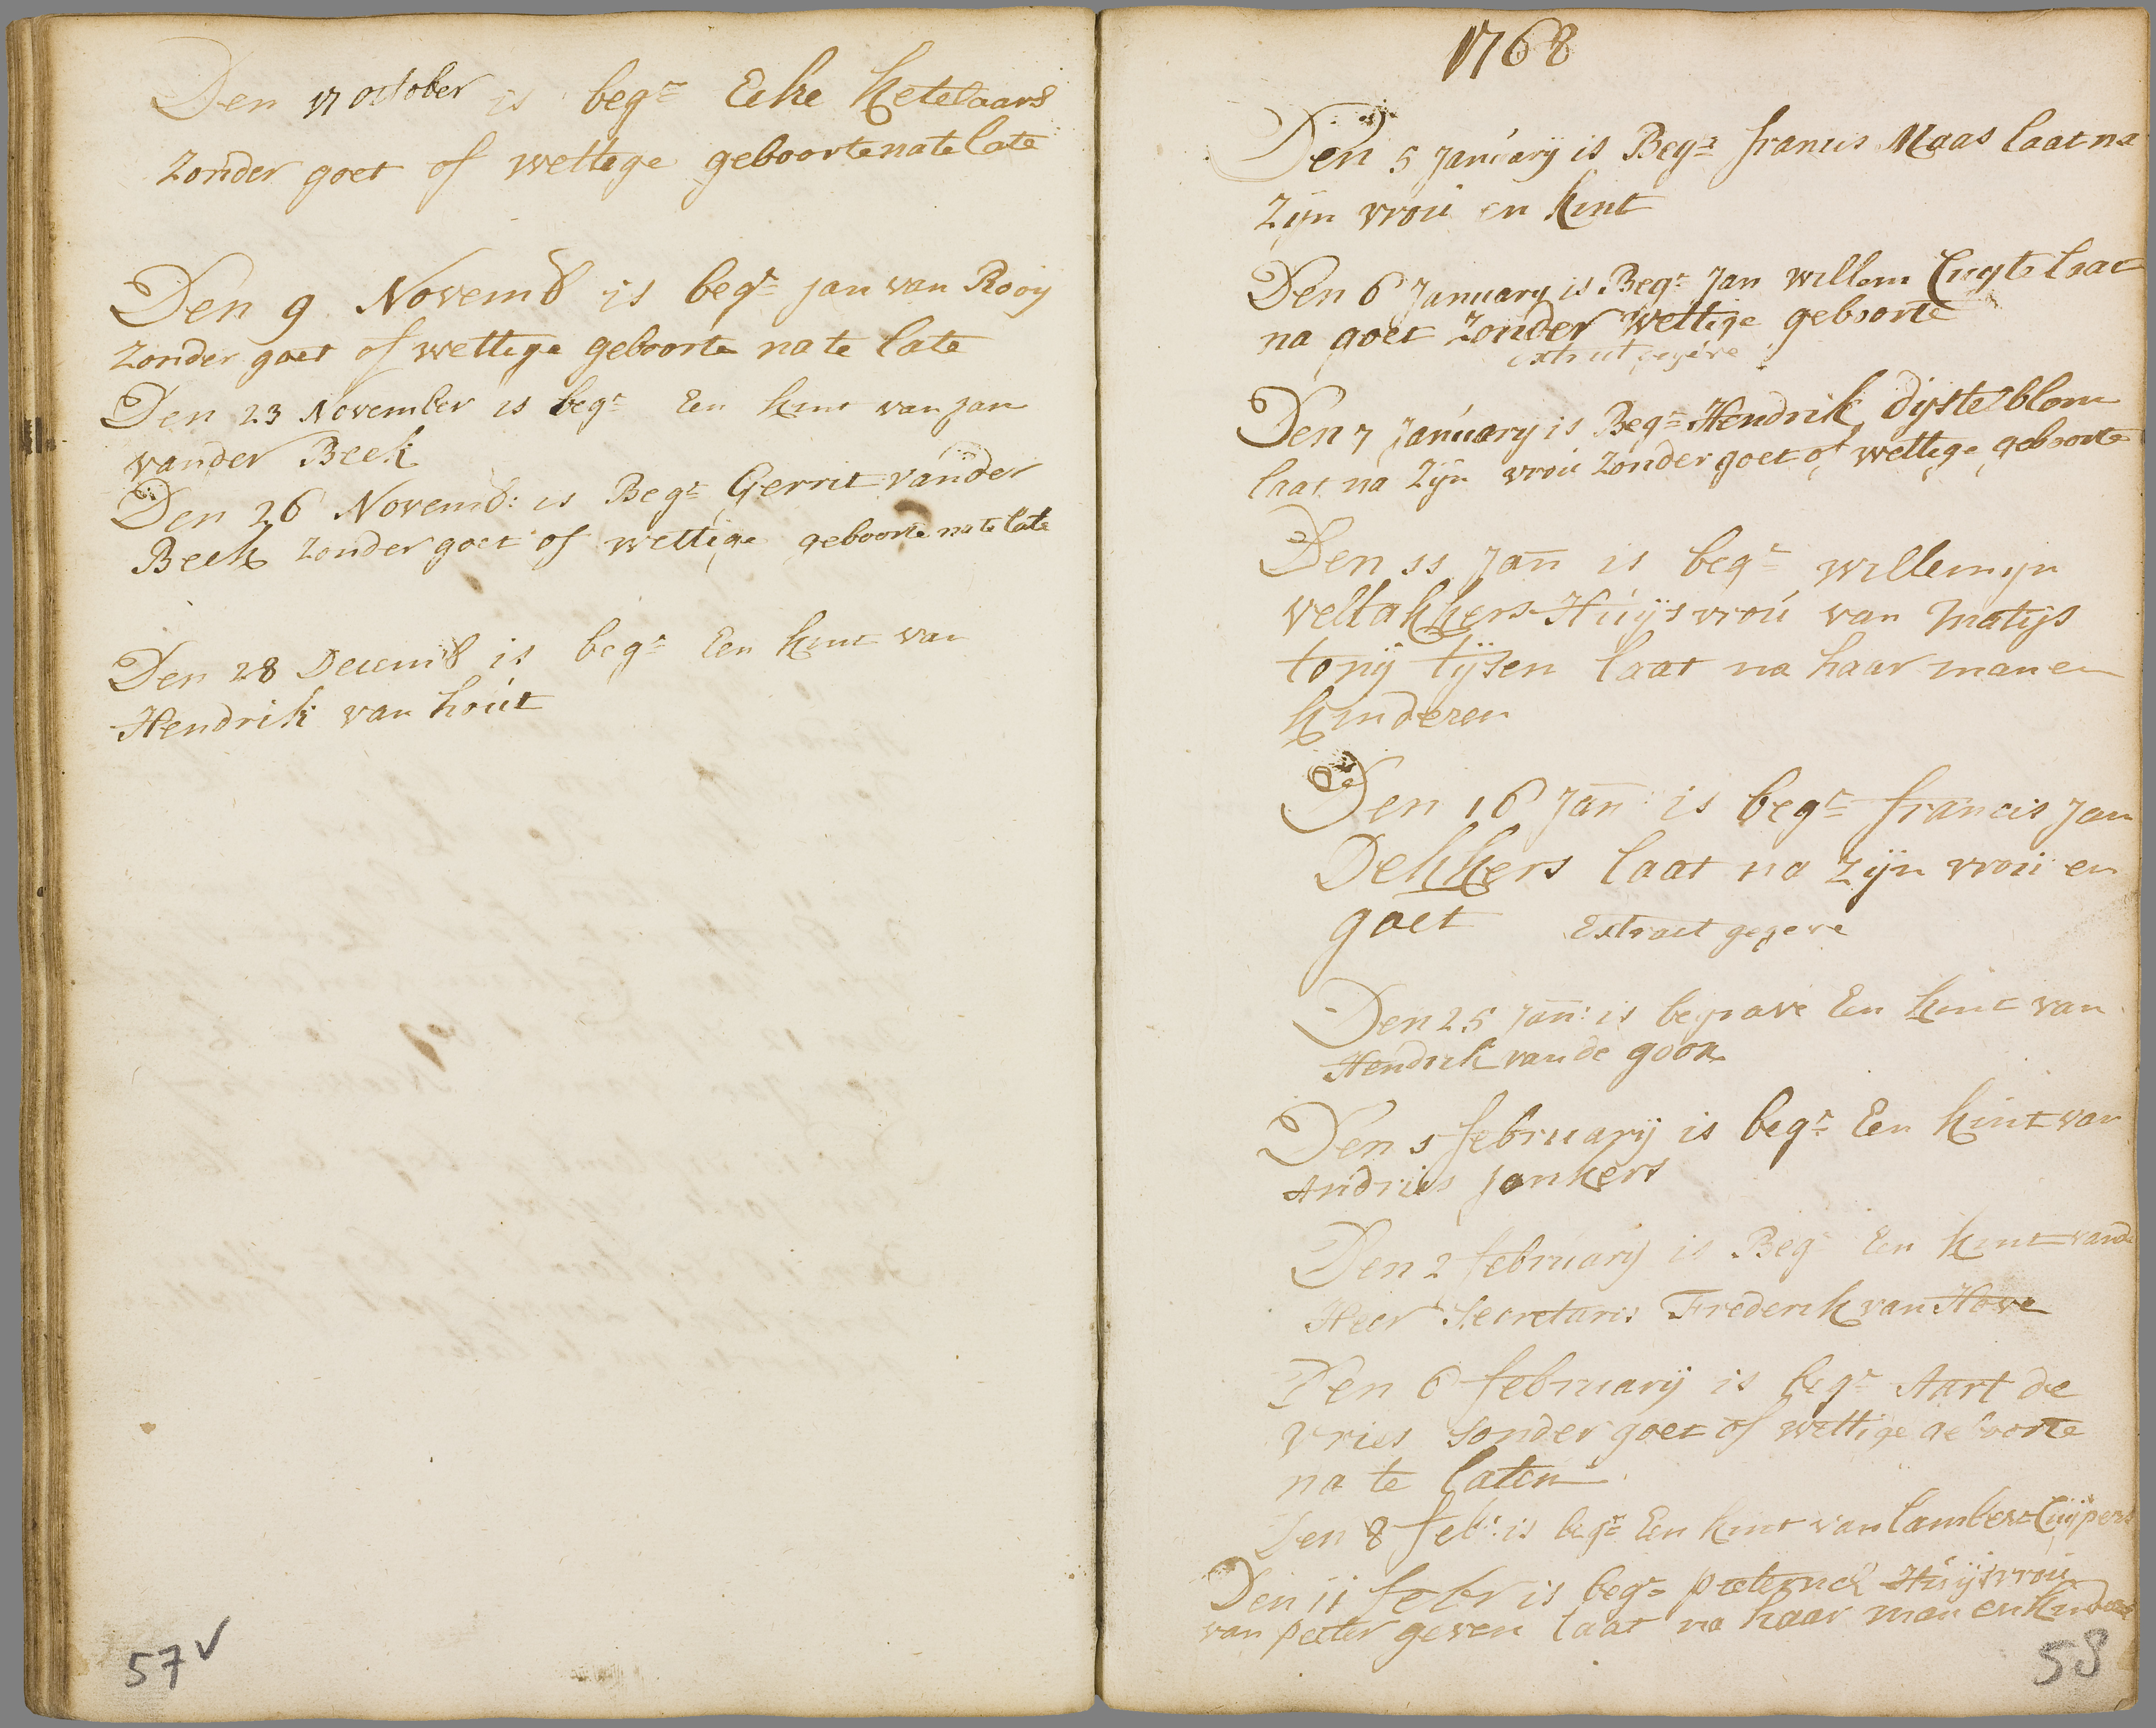 Den 17 october is begr Eike Ketelaars
Zonder goet of wettege geboorte na te late
Den 9 Novemb is begr jan van Rooy
Zonder goet of wettege geboorte na te late
Den 23 November is begr Een kint van jan
vander Beek
Den 26 Novemb: is Begr Gerrit vander
Beek Zonder goet of wettige geboorte na te late
Den 28 Decemb is begr Een kint van
Hendrik van hout
57v
1768
Den 5 january is Begr francis Maas laat na
Zijn vrou en kint
Den 6 January is Begr Jan willem laat
na goet Zonder wettige geboorte
extract gegeve
Den 7 January is Begr Hendrik dijstelblom
laat na Zijn vrou Zonder goet of wettege geboorte
Den 11 Jan is begr willemijn
veltakkers Huijsvrou van Matijs
tonij tijsen laat na haar man en
kinderen
Den 16 Jan is begr francis Jan
Dekkers laat na zijn vrou en
goet Extract gegeve
Den 25 Jan: is begrave Een kint van
Hendrik van de goor
Den 1 february is begr Een kint van
Andries Jonkers
Den 2 february is Begr Een kint vande
Heer Secretaris Frederik van Hove
Den 6 february is begr Aart de
Vries Sonder goet of wettige geboorte
na te laten
Den 8 feb: is begr Een kint van lambert Cuijpers
Den 11 febr is begr peternel Huijsvrou
van peeter geven laat na haar man en kindere
58